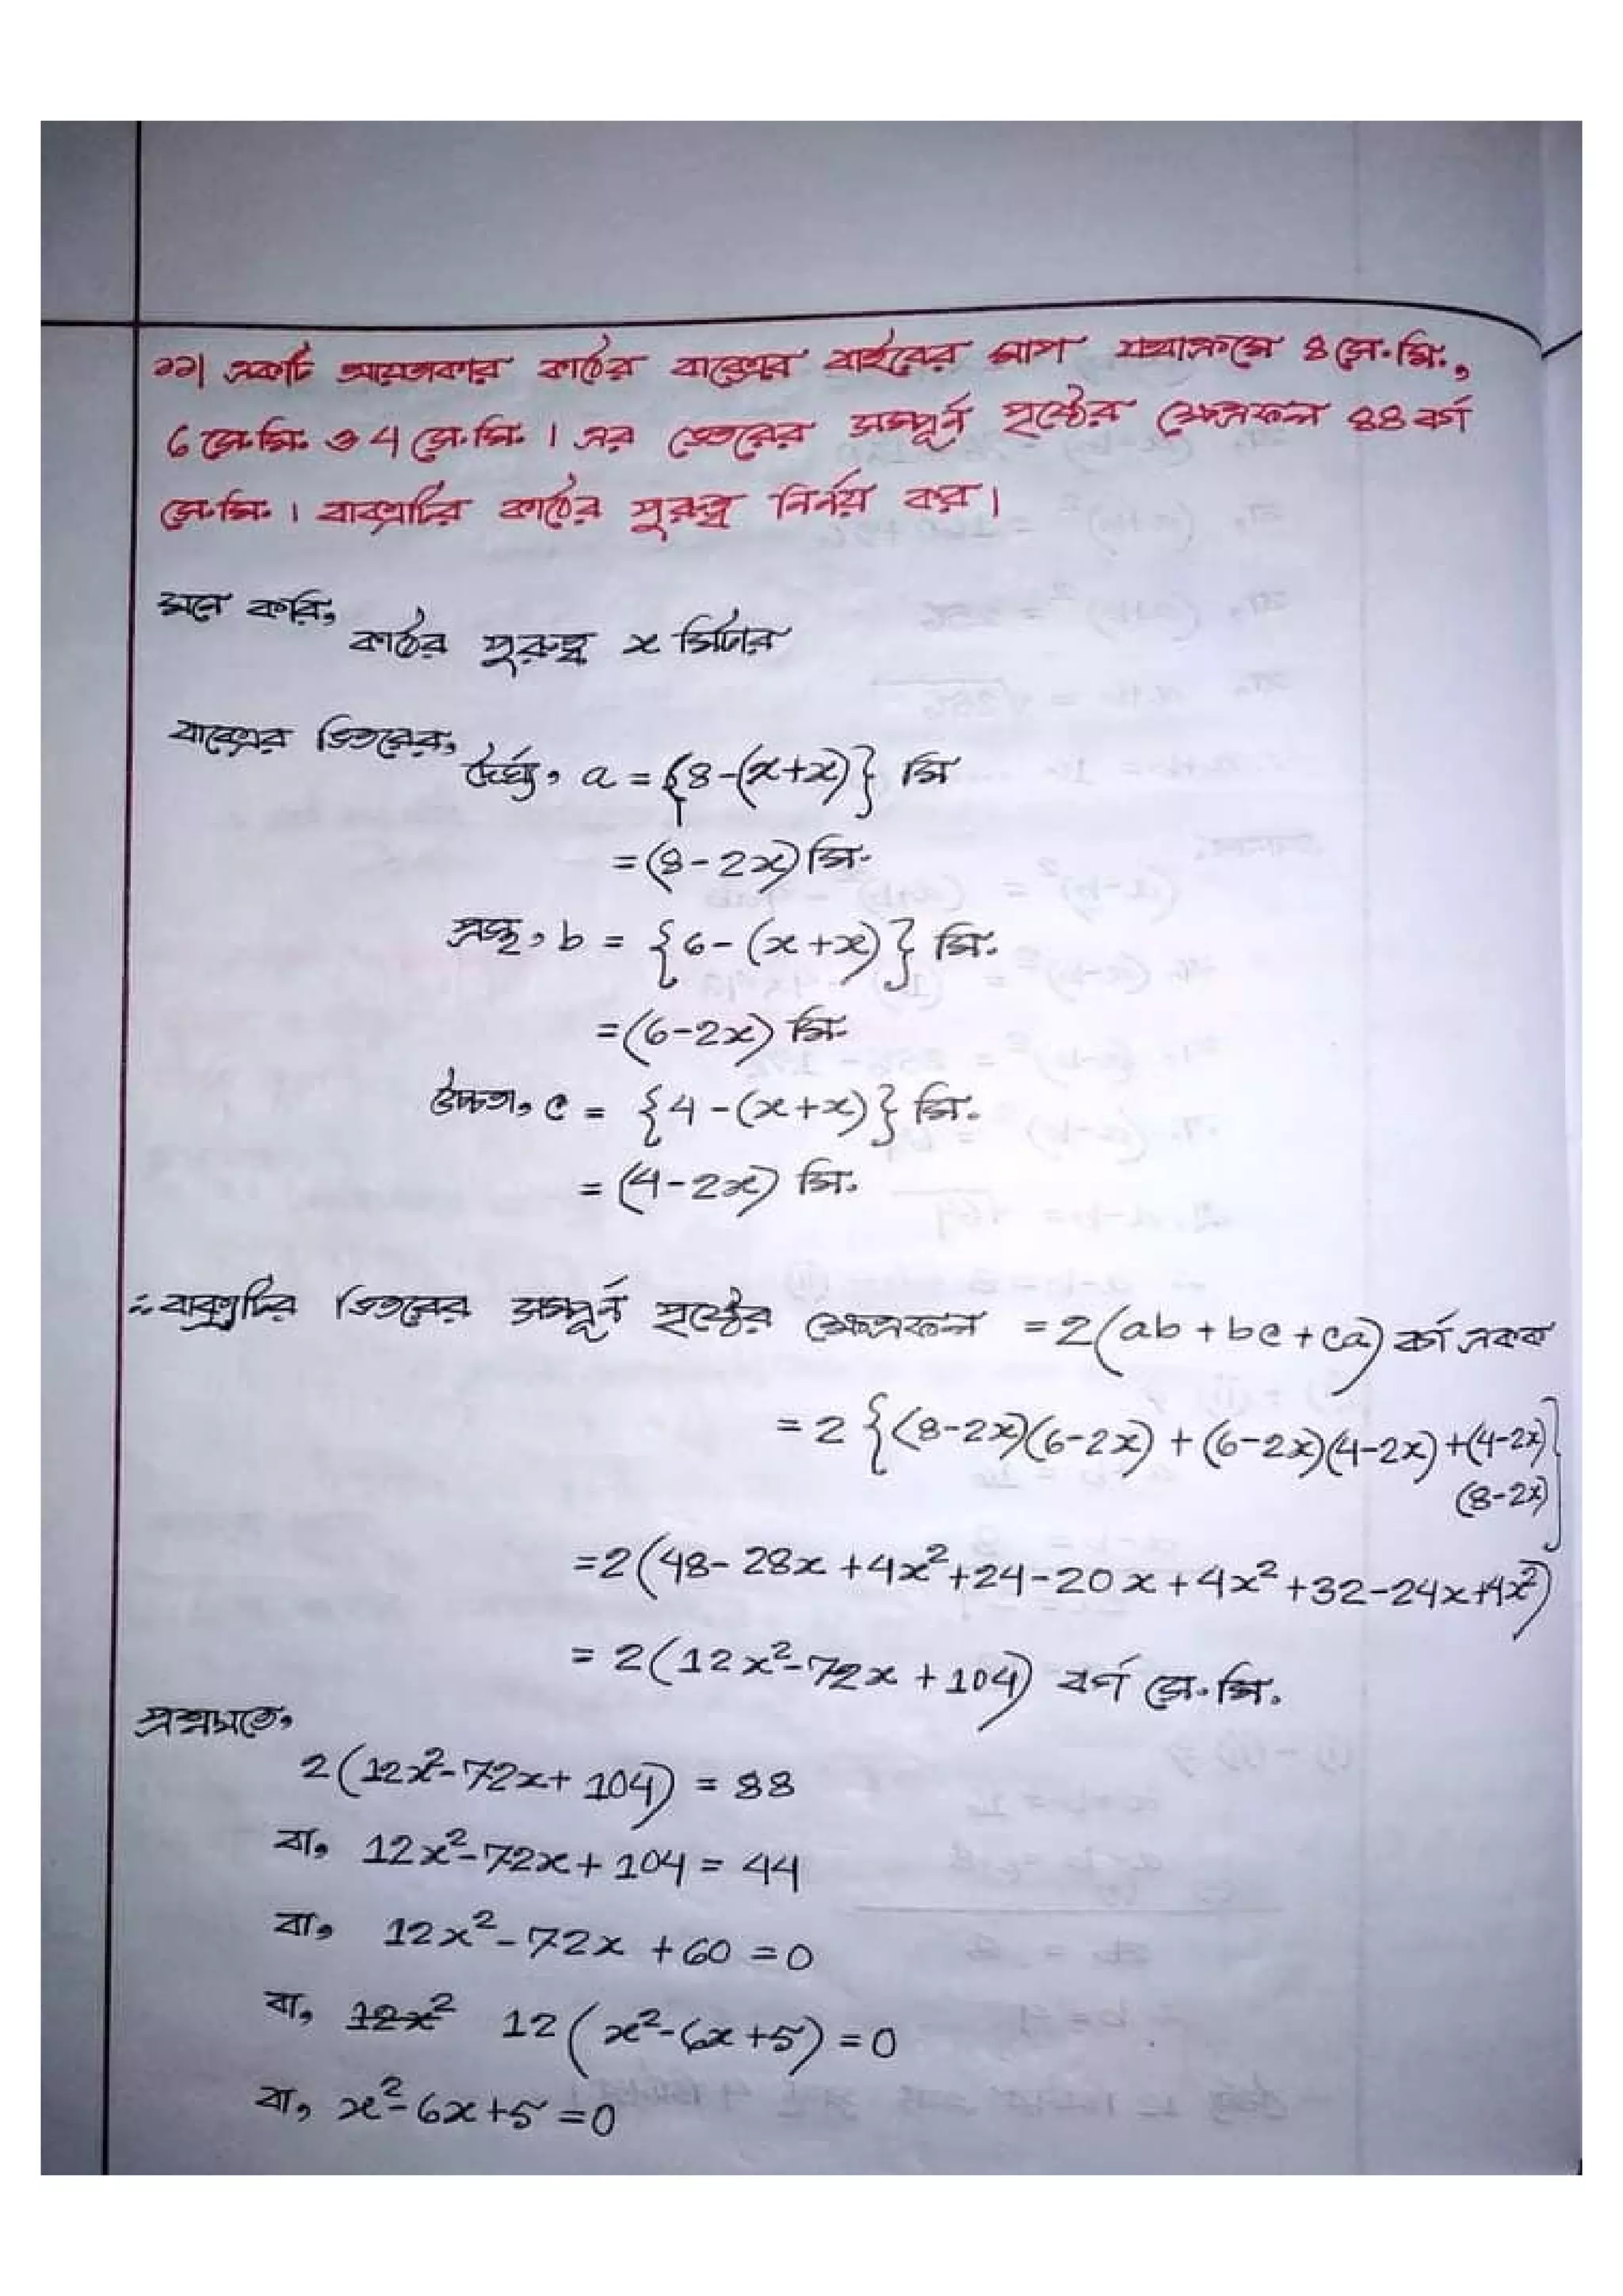 ১১। একটি আয়তাকার কাঠের বাক্সের বাইরের মাপ যথাক্রমে 8 সে.মি.,
6 সে.মি. ও 4 সে.মি. । এর ভেতরের সম্পূর্ন পৃষ্ঠের ক্ষেত্রফল 88 বর্গ
সে.মি. । বাক্সটির কাঠের পুরুত্ব নির্নয় কর।
মনে করি,
কাঠের পুরুত্ব x মিটার
বাক্সের ভিতরের,
দৈর্ঘ্য, a = {8-(x+x)} মি
=(8-2x) মি.
প্রস্থ, b = {6-(x+x)} মি.
=(6-2x) মি.
উচ্চতা, c = {4-(x+x)} মি.
= (4-2x) মি.
∴ বাক্সটির ভিতরের সম্পূর্ন পৃষ্ঠের ক্ষেত্রফল = 2(ab+bc+ca) বর্গ একক
= 2 {(8-2x)(6-2x)+(6-2x)(4-2x)+(4-2x)
(8-2x)}
=2(48-28x+4x²+24-20x+4x²+32-24x+4x²)
= 2(12x²-72x+104) বর্গ সে.মি.
প্রশ্নমতে,
2(12x²-72x+104) = 88
বা, 12x²-72x+104 = 44
বা, 12x²-72x+60=0
বা, 12x² 12(x²-6x+5)=0
বা, x²-6x+5=0